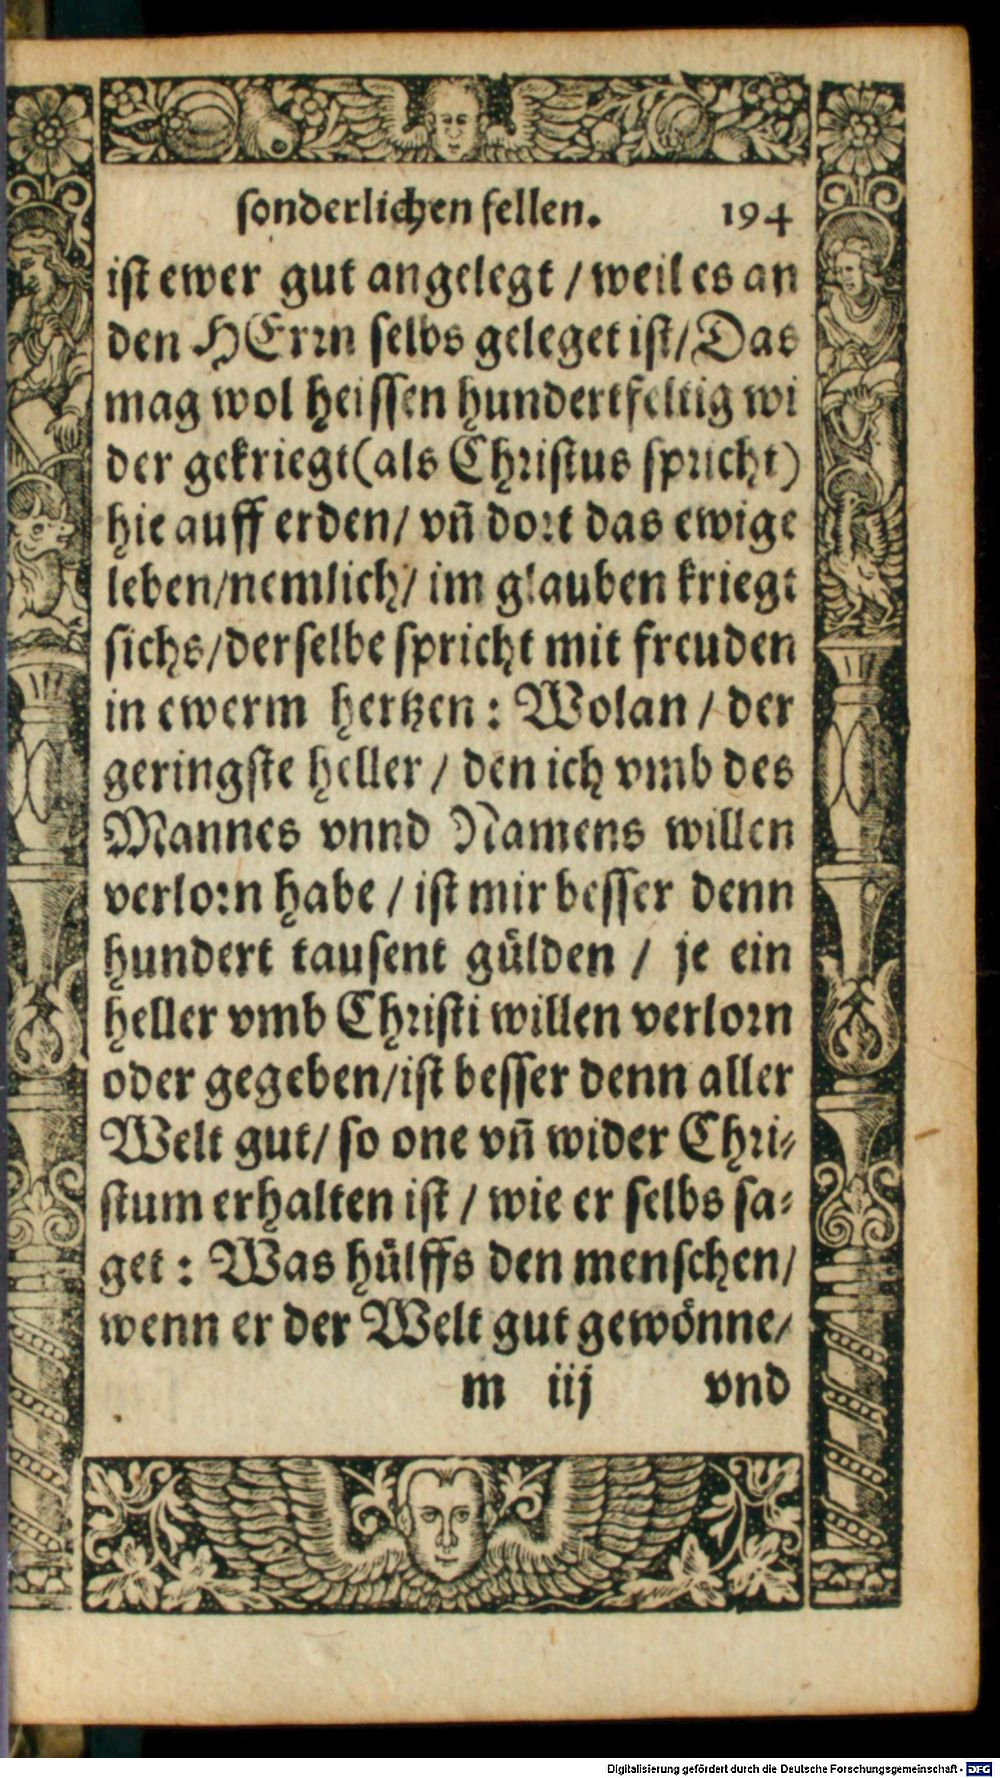 sonderlichen fellen. 194
ist ewer gut angelegt / weil es an
den HErrn selbs geleget ist/Das
mag wol heissen hundertfeltig wi
der gekriegt(als Christus spricht)
hie auff erden/ vñ dort das ewige
leben/nemlich/ im glauben kriegt
sichs/derselbe spricht mit freuden
in ewerm hertzen: Wolan / der
geringste heller / den ich vmb des
Mannes vnnd Namens willen
verlorn habe / ist mir besser denn
hundert tausent gülden / je ein
heller vmb Christi willen verlorn
oder gegeben/ist besser denn aller
Welt gut/ so one vñ wider Chri-
stum erhalten ist / wie er selbs sa-
get: Was hülffs den menschen/
wenn er der Welt gut gewönne/
m iij vnd
Digitalisierung gefördert durch die Deutsche Forschungsgemeinschaft - DFG